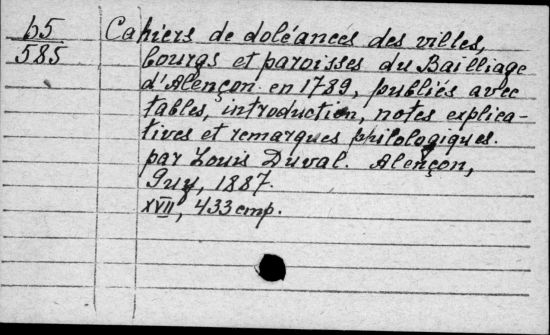 b5
585
Cahiers de doléances des villes,
bourgs et paroisses du Bailliage
d'Alençon en 1789, publiés avec
tables, introduction, notes explica-
tives et remarques philologiques.
par Louis Duval. Alençon,
Guy, 1887.
XVII, 433 стр.